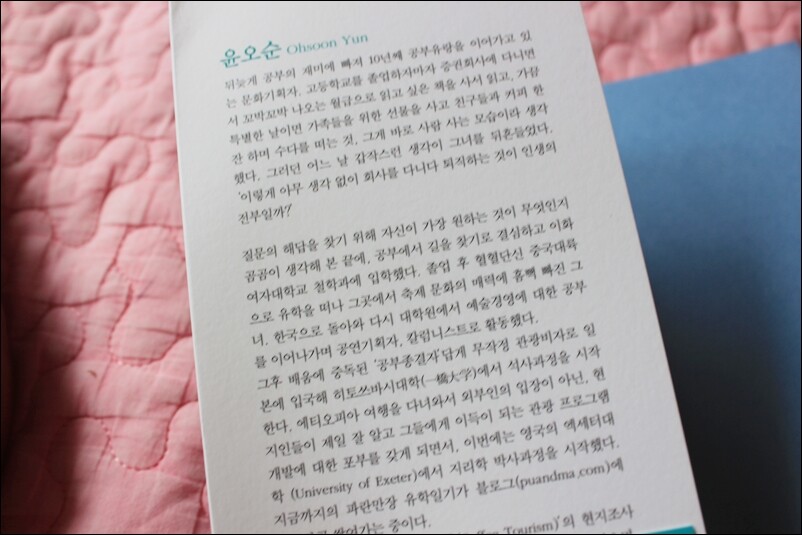 윤오순 Ohsoon Yun
뒤늦게 공부의 재미에 빠져 10년째 공부유랑을 이어가고 있
는 문화기획자. 고등학교를 졸업하자마자 증권회사에 다니면
서 꼬박꼬박 나오는 월급으로 읽고 싶은 책을 사서 읽고, 가끔
특별한 날이면 가족들을 위한 선물을 사고 친구들과 커피 한
잔 하며 수다를 떠는 것, 그게 바로 사람 사는 모습이라 생각
했다. 그러던 어느 날 갑작스런 생각이 그녀를 뒤흔들었다.
'이렇게 아무 생각 없이 회사를 다니다 퇴직하는 것이 인생의
전부일까?'
질문의 해답을 찾기 위해 자신이 가장 원하는 것이 무엇인지
곰곰이 생각해 본 끝에, 공부에서 길을 찾기로 결심하고 이화
여자대학교 철학과에 입학했다. 졸업 후 혈혈단신 중국대륙
으로 유학을 떠나 그곳에서 축제 문화의 매력에 흠뻑 빠진 그
녀. 한국으로 돌아와 다시 대학원에서 예술경영에 대한 공부
를 이어나가며 공연기획자, 칼럼니스트로 활동했다.
그후 배움에 중독된 '공부종결자'답게 무작정 관광비자로 일
본에 입국해 히토쓰바시대학(一橋大学)에서 석사과정을 시작
한다. 에티오피아 여행을 다녀와서 외부인의 입장이 아닌, 현
지인들이 제일 잘 알고 그들에게 이득이 되는 관광 프로그램
개발에 대한 포부를 갖게 되면서, 이번에는 영국의 엑세터대
학 (University of Exeter)에서 지리학 박사과정을 시작했다.
지금까지의 파란만장 유학일기가 블로그(puandma.com)에
쌓여가는 중이다.
Tourism)'의 현지조사